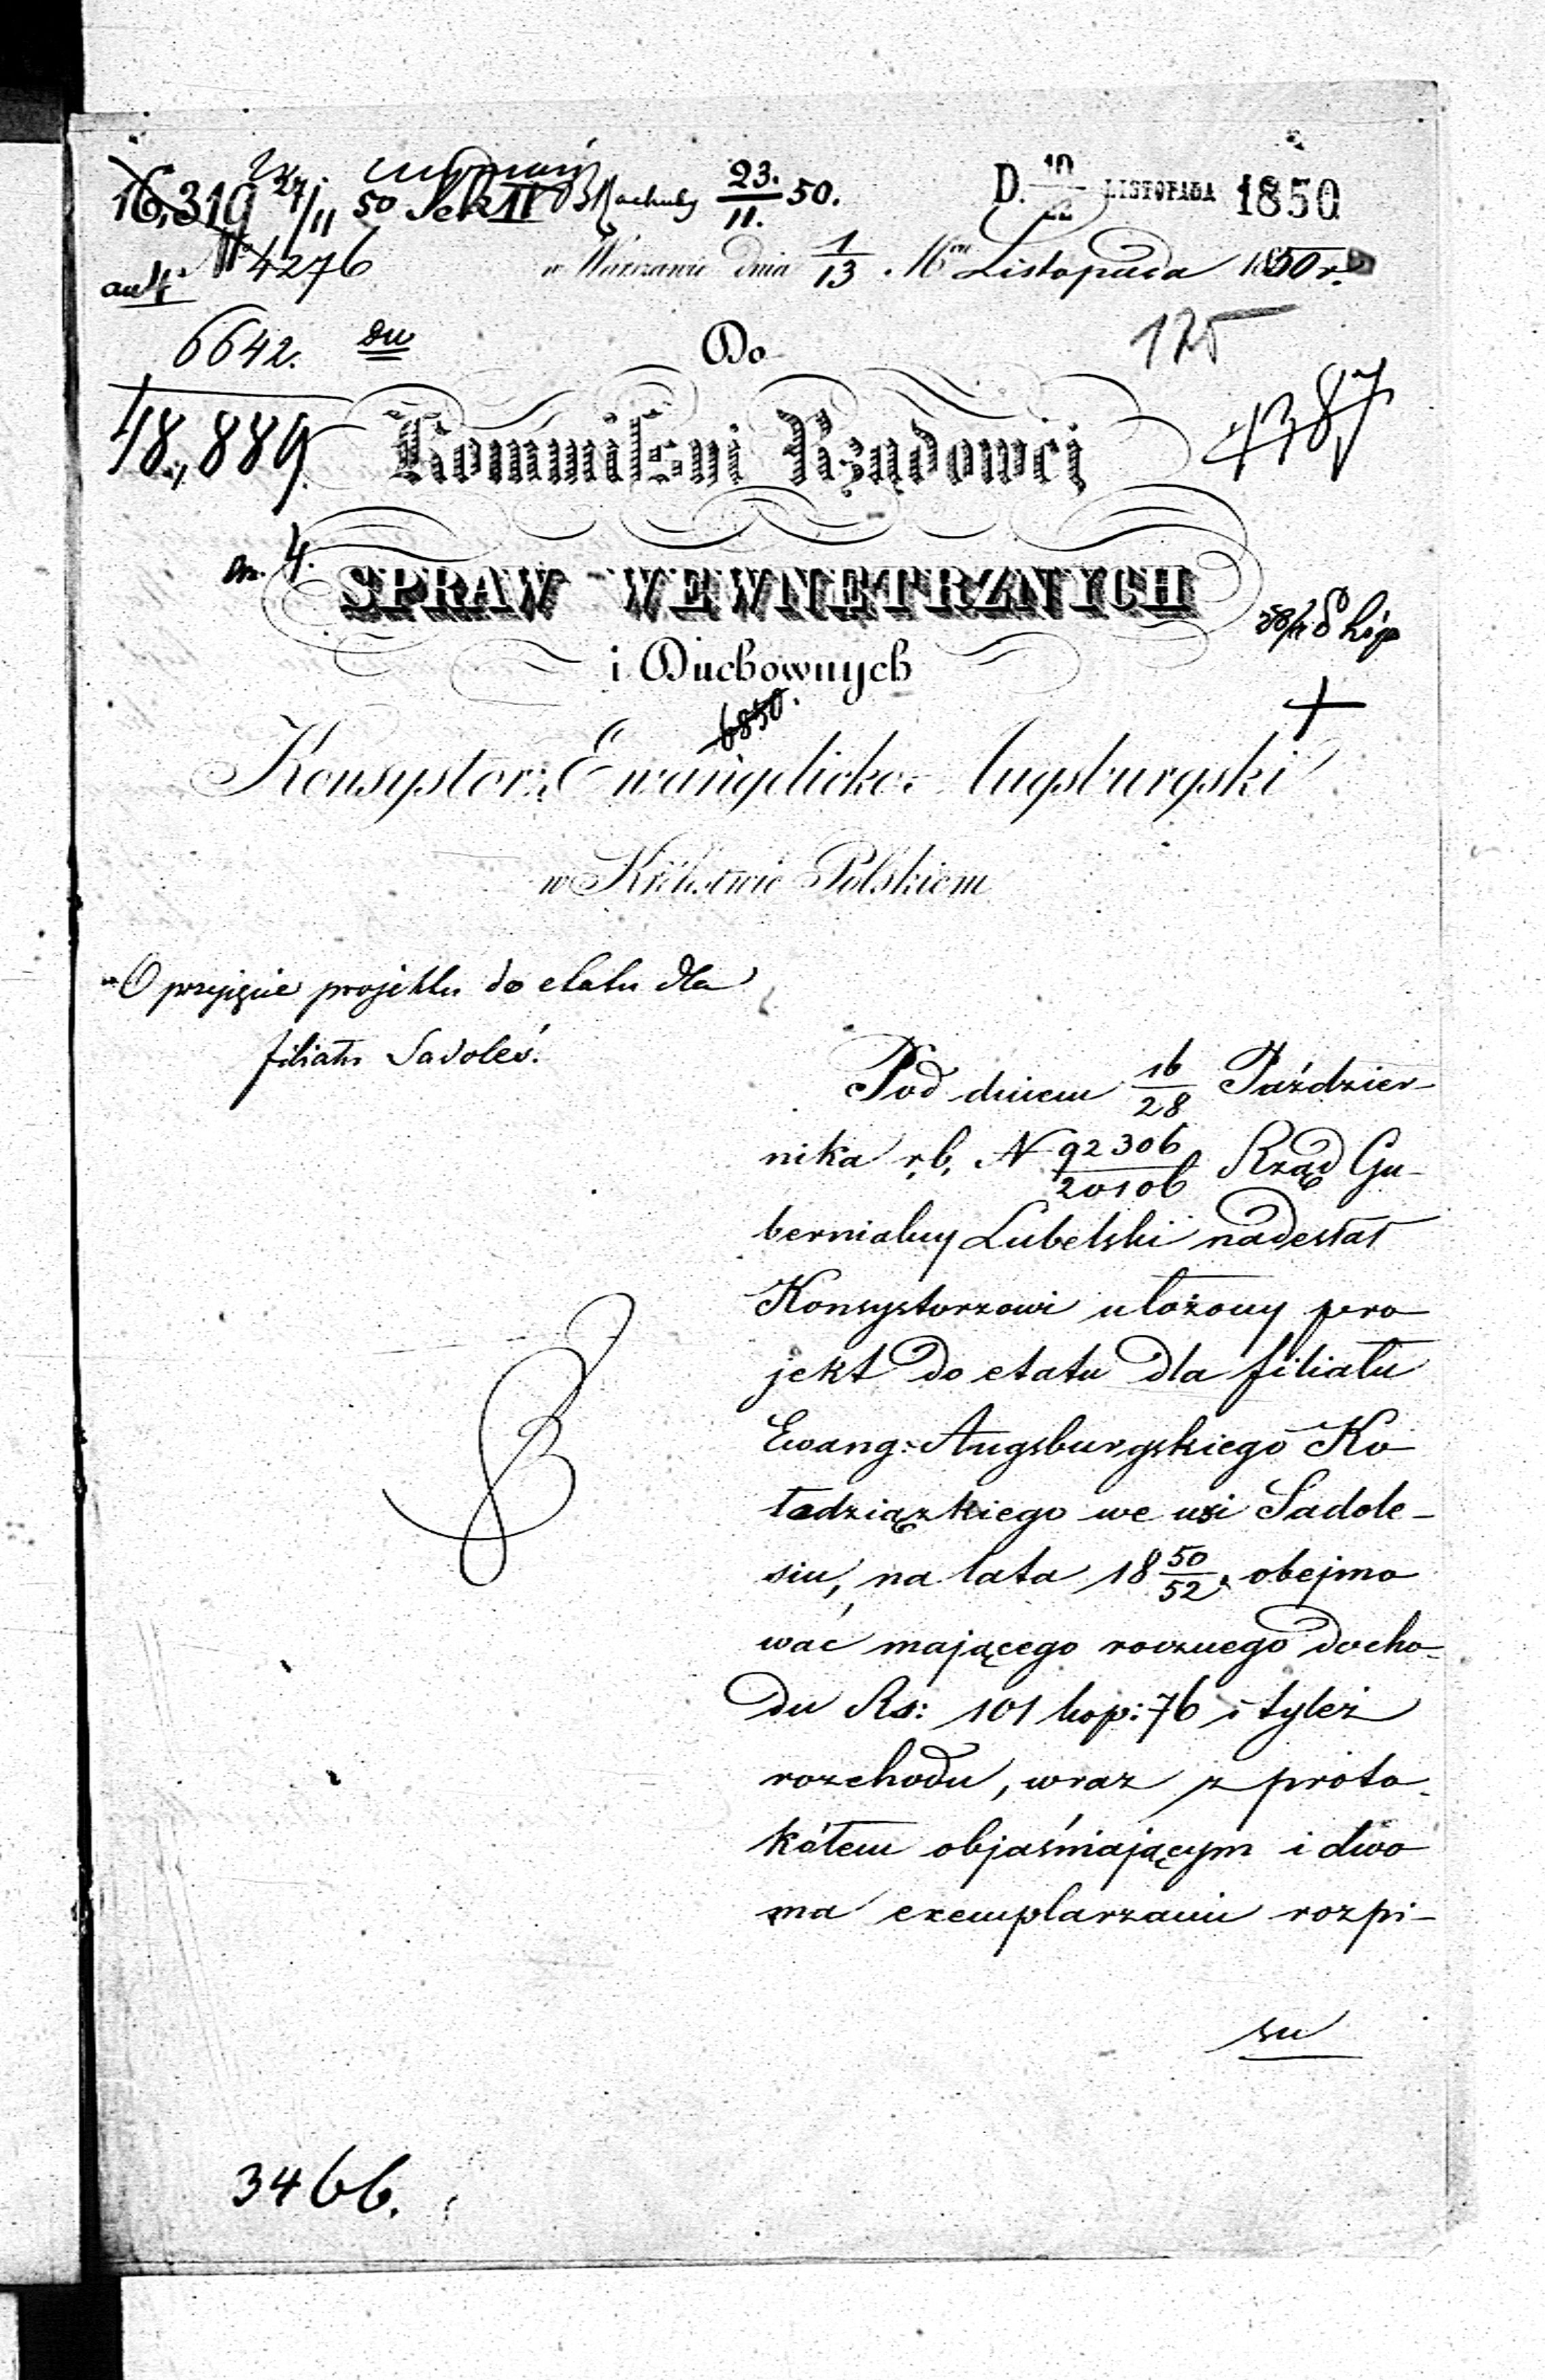 16,319 27/11 50 Sek II 23./11. 50. D. 10/22 LISTOPADA 1850
№ 4276 w Warszawie dnia 1/13 Listopada 1850 r.
6642. Do 125
18,889. Kommissyi Rządowej 4387
4. SPRAW WEWNĘTRZNYCH
i Duchownych
6850.
Konsystorz Ewangelicko-Augsburgski
w Królestwie Polskiem
O przyjęcie projektu do etatu dla
filiału Sadoleś.
Pod dniem 16/28 Paździer-
nika r. b. N 92306/20106 Rząd Gu-
bernialny Lubelski nadesłał
Konsystorzowi ułożony pro
jekt do etatu dla filiału
Ewang: Augsburgskiego Ko
łodziązkiego we wsi Sadole-
siu, na lata 18 50/52, obejmo
wać mającego rocznego docho-
du Rs: 101 kop: 76 i tyleż
rozchodu, wraz z proto-
kółem objaśniającym i dwo
ma exemplarzami rozpi-
su
3466.